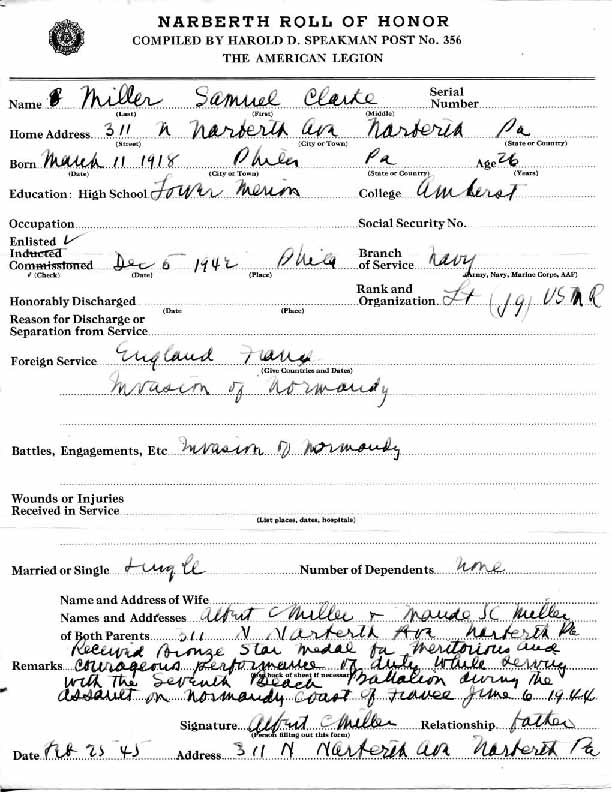 NARBERTH ROLL OF HONOR
COMPILED BY HAROLD D. SPEAKMAN POST No. 356
THE AMERICAN LEGION
Name Miller Samuel Clarke Serial Number
(Last) (First) (Middle)
Home Address 311 N Narberth Ava Narberth Pa
(Street) (City or Town) (State or Country)
Born March 11 1918 Phila Pa Age 26
(Date) (City or Town) (State or Country) (Years)
Education: High School Lower Merion College Amherst
Occupation Social Security No.
Enlisted ✓
Inducted
Commissioned Dec 5 1942 Phila Branch of Service Navy
✓ (Check) (Date) (Place) (Army, Navy, Marine Corps, AAF)
Honorably Discharged Rank and Organization Lt (Jg) USNR
(Date (Place)
Reason for Discharge or
Separation from Service
Foreign Service England France
(Give Countries and Dates)
Invasion of Normandy
Battles, Engagements, Etc Invasion of Normandy
Wounds or Injuries
Received in Service
(List places, dates, hospitals)
Married or Single Single Number of Dependents None
Name and Address of Wife
Names and Addresses Albert C Miller + Maude SC Miller
of Both Parents 311 N Narberth Ava Narberth Pa
Received Bronze Star medal for Meritorious and
Remarks courageous performance of duty while serving
(Use back of sheet if necessary)
with the Seventh Beach Battalion during the
assault on Normandy Coast of France June 6 1944
Signature Albert C Miller Relationship father
(Person filling out this form)
Date Feb 25 45 Address 311 N Narberth Ava Narberth Pa